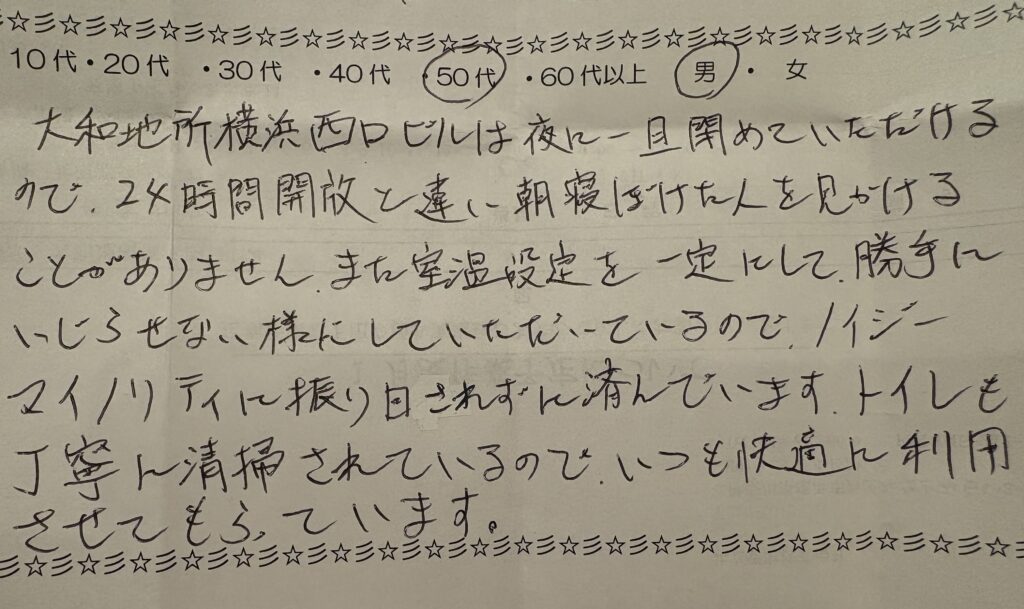 彡☆彡☆彡☆彡☆彡☆彡☆彡☆彡☆彡☆彡☆彡☆彡☆彡☆彡☆彡☆彡☆彡☆彡☆彡☆彡
10代・20代 ・30代 ・40代 ・50代 ・60代以上 男 ・ 女
大和地所横浜西口ビルは夜に一旦閉めていただける
ので、24時間開放と違い朝寝ぼけた人を見かける
ことがありません。また室温設定を一定にして、勝手に
いじらせない様にしていただいているので、ノイジー
マイノリティに振り回されずに済んでいます。トイレも
丁寧に清掃されているので、いつも快適に利用
させてもらっています。
彡☆彡☆彡☆彡☆彡☆彡☆彡☆彡☆彡☆彡☆彡☆彡☆彡☆彡☆彡☆彡☆彡☆彡☆彡☆彡